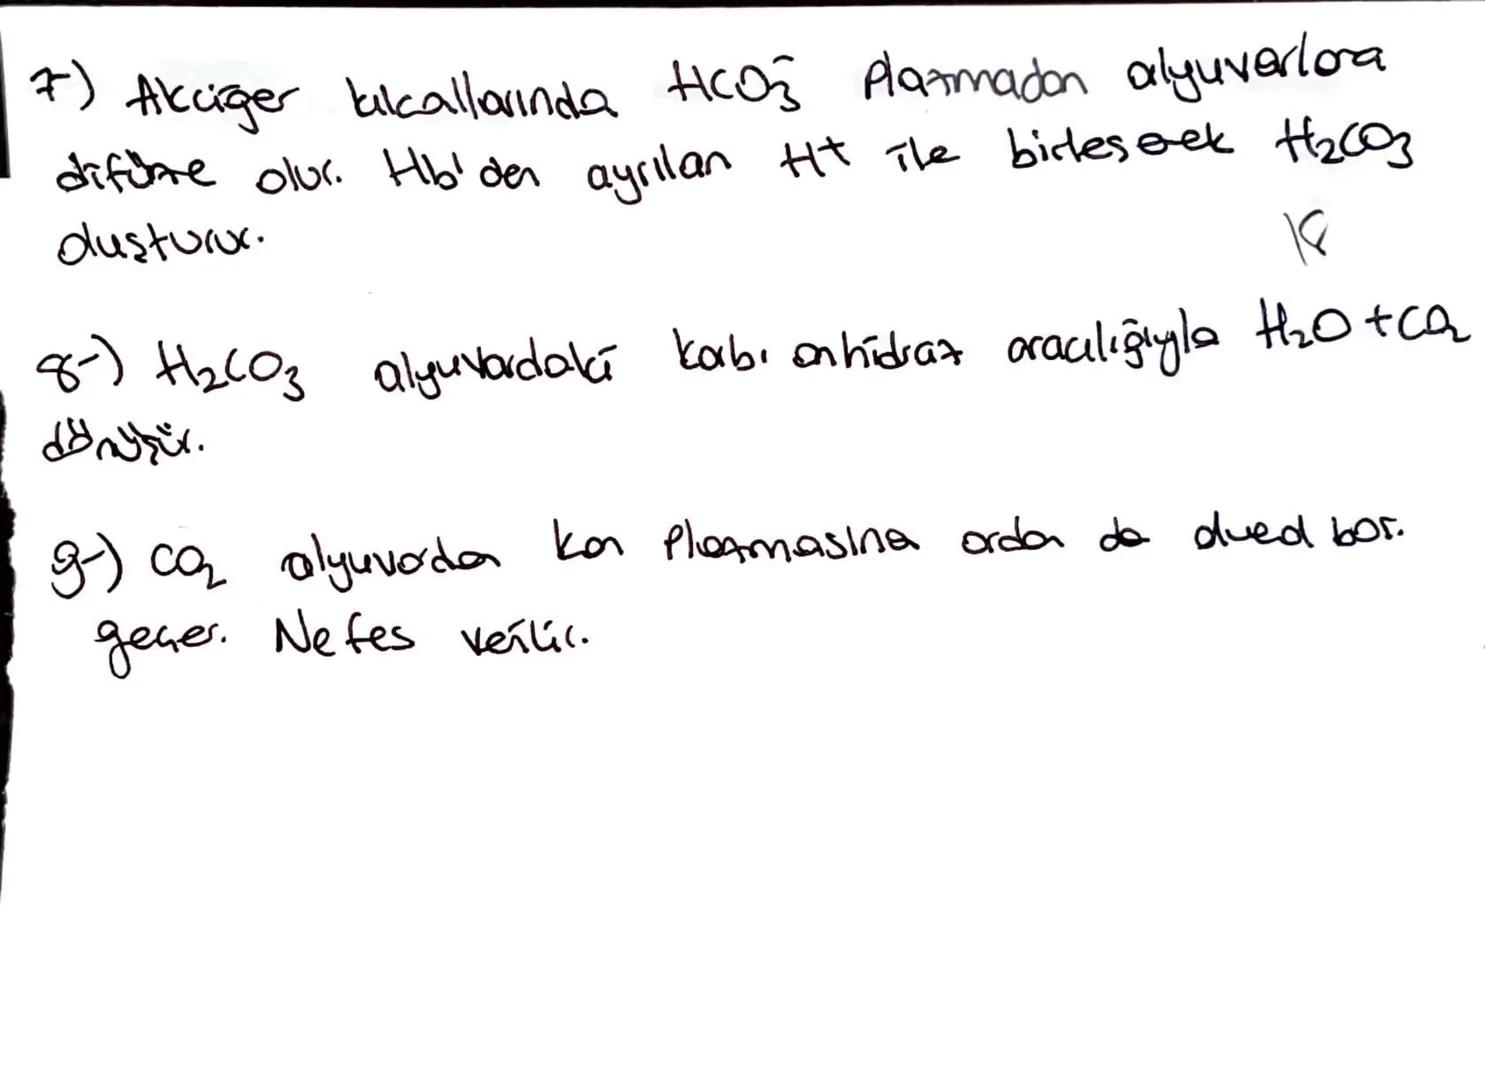 7-) Akciğer kılcallarında HCO₃⁻ Plazmadan alyuvarlara
difüze olur. Hb'den ayrılan H⁺ ile birleşerek H₂CO₃
oluşturur.
8-) H₂CO₃ alyuvardaki karb. anhidraz aracılığıyla H₂O + CO₂
dönüşür.
9-) CO₂ alyuvardan kan Plazmasına ordan da alveol boş.
geçer. Nefes verilir.